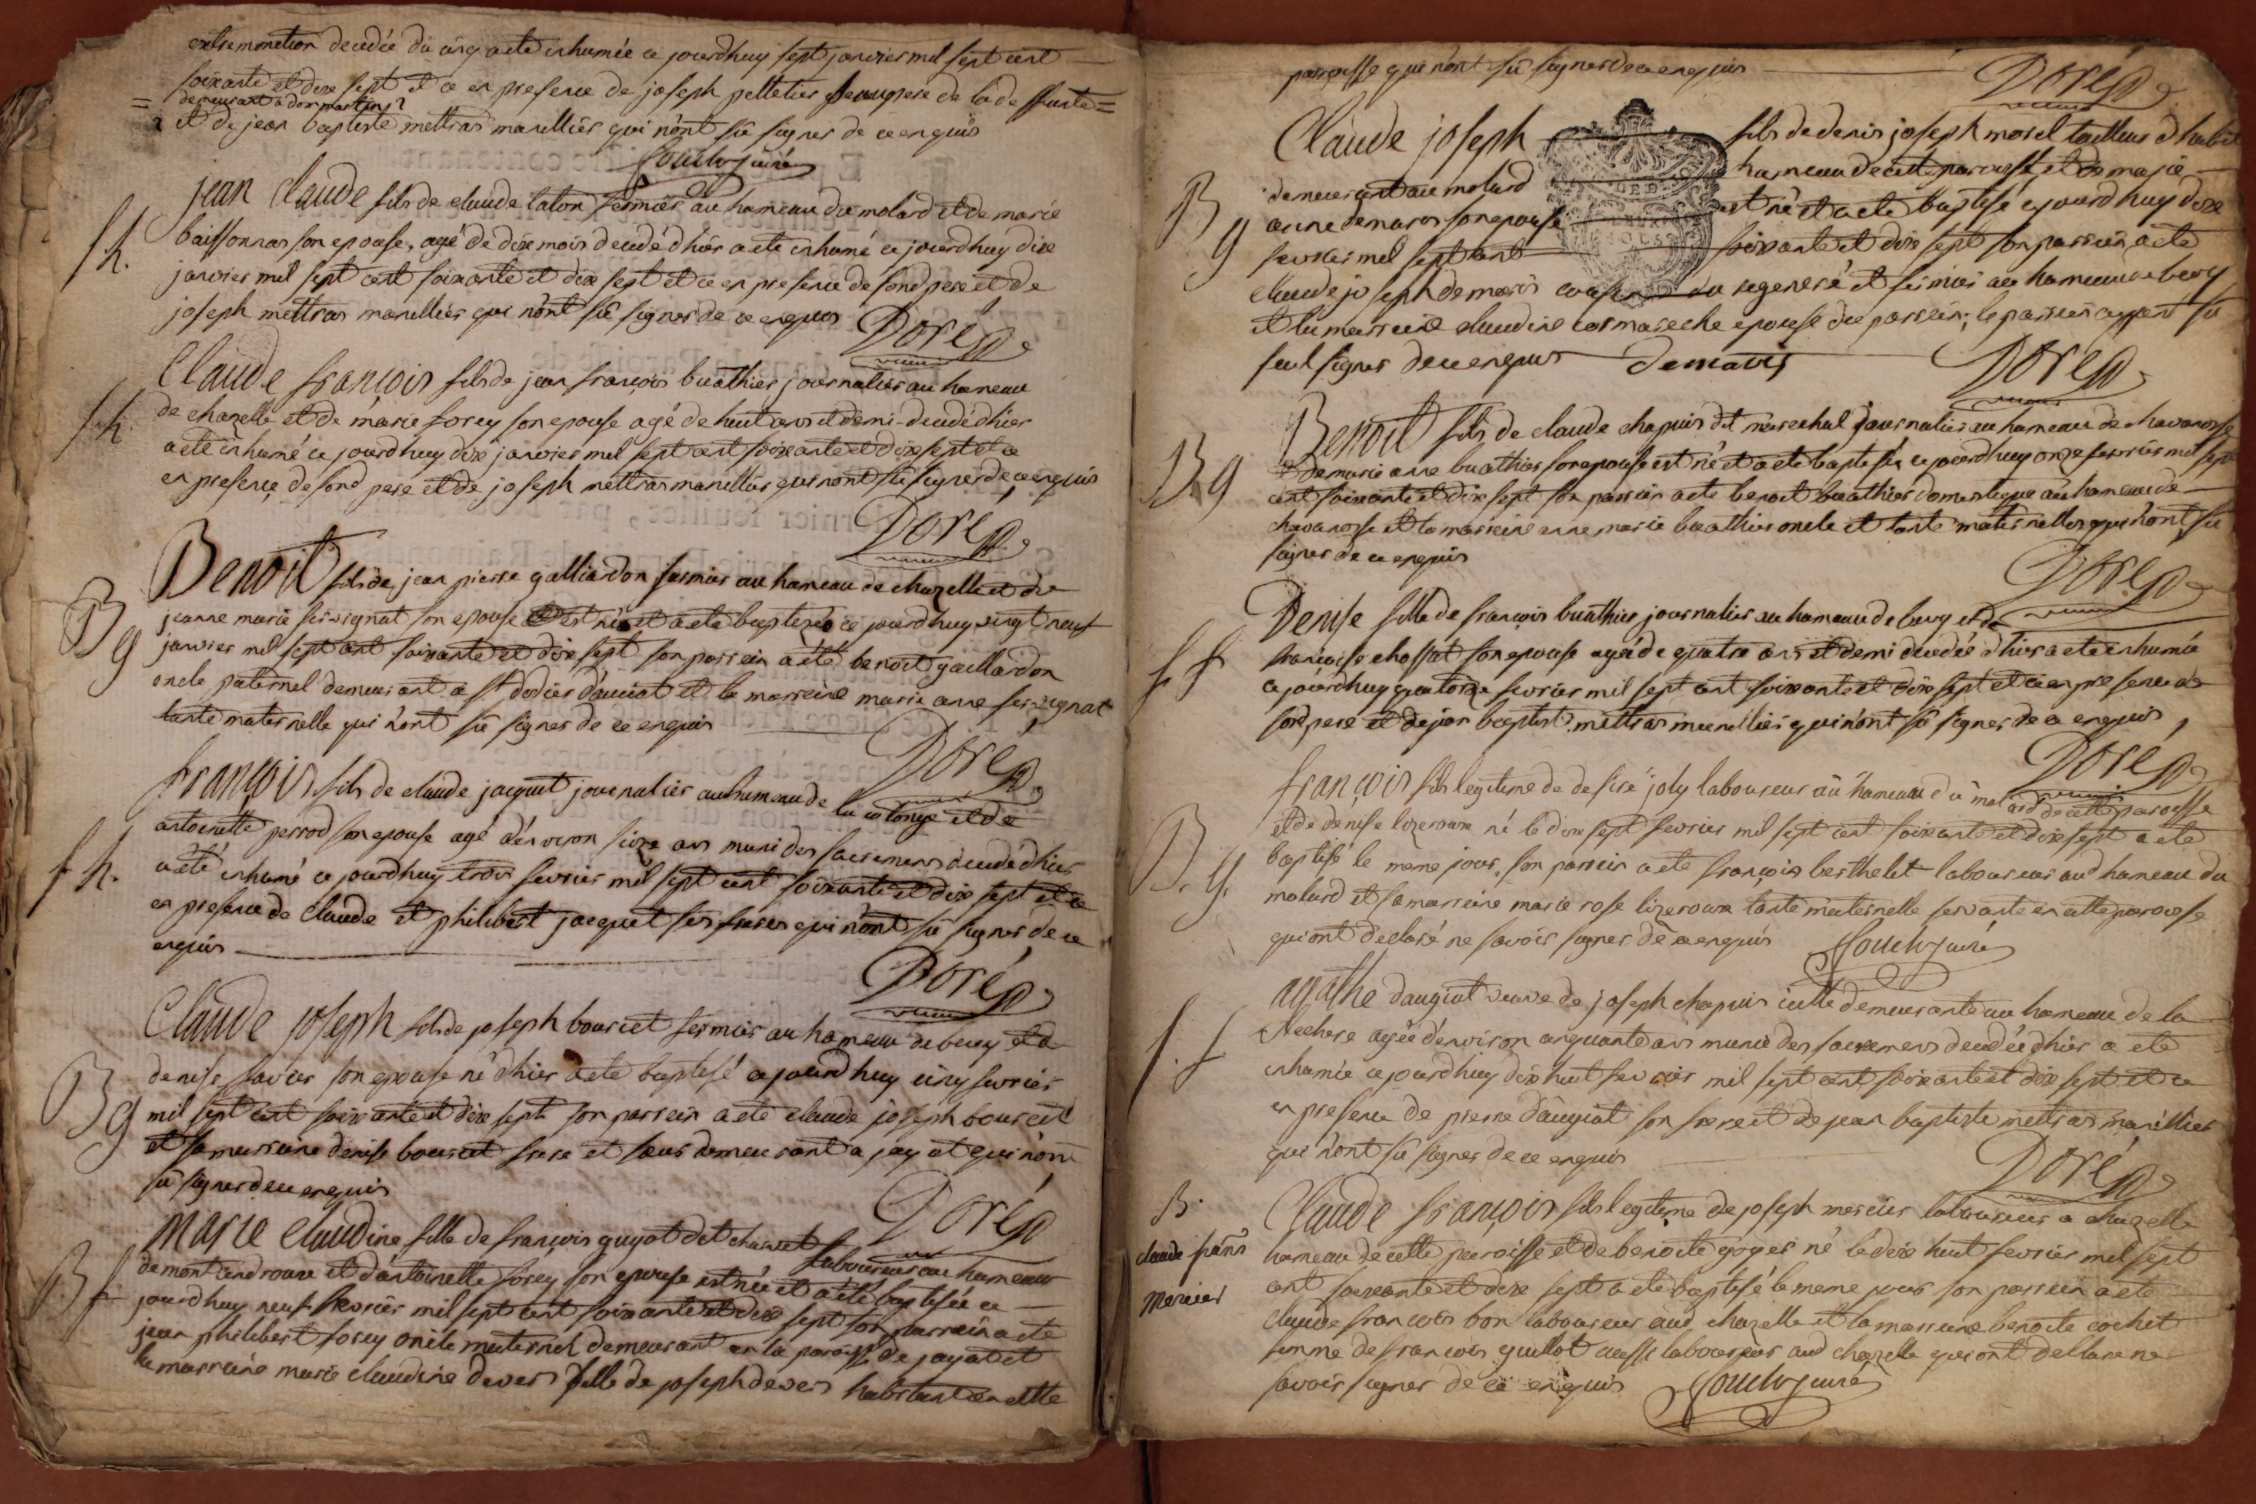 extremonction decedée du cinq a ete inhumée ce jourdhuy sept janvier mil sept cent
soixante et dixe sept et ce en presence de joseph pelletier beaupere de la deffunte =
= demeurant a dommartin
et de jean baptiste mettras marellier qui n'ont sû signer de ce enquis
jean Claude fils de claude talon fermier au hameau du molard et de marie
buissonnas son epouse, agé de dixe mois decedé d'hier a ete inhumé ce jourdhuy dixe
janvier mil sept cent soixante et dixe sept et ce en presence de sond pere et de
joseph mettras marellier qui n'ont sû signer de ce enquis Doré
Claude françois fils de jean françois buathier journalier au hameau
de chazelle et de marie forey son epouse agé de huit ans et demi decedé d'hier
a ete inhumé ce jourdhuy dixe janvier mil sept cent soixante et dixe sept et ce
en presence de sond pere et de joseph mettras marellier qui n'ont sû signer de ce enquis
Doré
Benoit fils de jean pierre galliardon fermier au hameau de chazelle et de
jeanne marie fervignat son epouse est né et a ete baptisé ce jourdhuy vingt neuf
janvier mil sept cent soixante et dixe sept son parrein a été benoit gaillardon
oncle paternel demeurant a st didier d'auciat et la marreine marie anne fervignat
tante maternelle qui n'ont sû signer de ce enquis
Doré
françois fils de claude jacquet journalier au hameau de la colonge et de
antoinette perrod son epouse agé d'environ seize ans muni des sacremens decedé d'hier
a été inhumé ce jourdhuy trois fevrier mil sept cent soixante et dixe sept et ce
en presence de claude et philibert jacquet ses freres qui n'ont sû signer de ce
enquis
Doré
Claude joseph fils de joseph bourcet fermier au hameau de bevey et de
denise favier son epouse né d'hier a ete baptisé ce jourdhuy cinq fevrier
mil sept cent soixante et dixe sept son parrein a ete claude joseph bourcet
et sa marreine denise bourcet frere et soeur demeurant a jayat qui n'ont
sû signer de ce enquis
Doré
Marie Claudine fille de françois guyot dit chanet laboureur au hameau
de montcindroux et d'antoinette forey son epouse est née et a été baptisée ce
jourdhuy neuf fevrier mil sept cent soixante et dixe sept son parrein a ete
jean philibert forey oncle maternel demeurant en la paroisse de jayat et
la marreine marie claudine devers fille de joseph devers habitant en cette
B g
f h.
B f
paroisse qui n'ont sû signer de ce enquis
Doré
Claude joseph fils de denis joseph morel tailleur d'habit
demeurant au molard hameau de cette paroisse et de marie
anne demaris son epouse est né et a ete baptisé ce jourdhuy dixe
fevrier mil sept cent soixante et dixe sept son parrein a ete
claude joseph demaris cousin du regeneré et fermier au hameau de bevey
et la marreine claudine cormareche epouse du parrein, le parrein ayant sû
seul signer de ce enquis demaris Doré
Benoit fils de claude chapuis dit marechal journalier au hameau de chavanosse
et de marie anne buathier son epouse est né et a ete baptisé ce jourdhuy onze fevrier mil sept
cent soixante et dixe sept son parrein a ete benoit buathier domestique au hameau de
chavanosse et la marreine anne marie buathier oncle et tante maternelles qui n'ont sû
signer de ce enquis
Doré
Denise fille de françois buathier journalier au hameau de bevey et de
françoise chossat son epouse agée de quatre ans et demi decedée d'hier a ete inhumée
ce jourdhuy quatorze fevrier mil sept cent soixante et dixe sept et ce en presence de
sond pere et de jean baptiste mettras marellier qui n'ont sû signer de ce enquis
Doré
françois fils legitime de desiré joly laboureur au hameau du molard de cette paroisse
et de denise lizeroux né le dixe sept fevrier mil sept cent soixante et dixe sept a ete
baptisé le meme jour, son parrein a ete françois berthelet laboureur aud hameau du
molard et sa marreine marie rose lizeroux tante maternelle servante en cette paroisse
qui ont declaré ne savoir signer de ce enquis
agathe daugiat veuve de joseph chapuis demeurante au hameau de la
agée d'environ cinquante ans munie des sacremens decedée d'hier a ete
inhumée ce jourdhuy dixe huit fevrier mil sept cent soixante et dixe sept et ce
en presence de pierre daugiat son frere et de jean baptiste mettras marellier
qui n'ont sû signer de ce enquis
Doré
B.
claude frans
Mercier
Claude françois fils legitime de joseph mercier laboureur a chazelle
hameau de cette paroisse et de benoite goyer né le dixe huit fevrier mil sept
cent soixante et dixe sept a ete baptisé le meme jour son parrein a ete
claude françois bon laboureur aud chazelle et la marreine benoite cochet
femme de françois guillot aussi laboureur aud chazelle qui ont declare ne
savoir signer de ce enquis